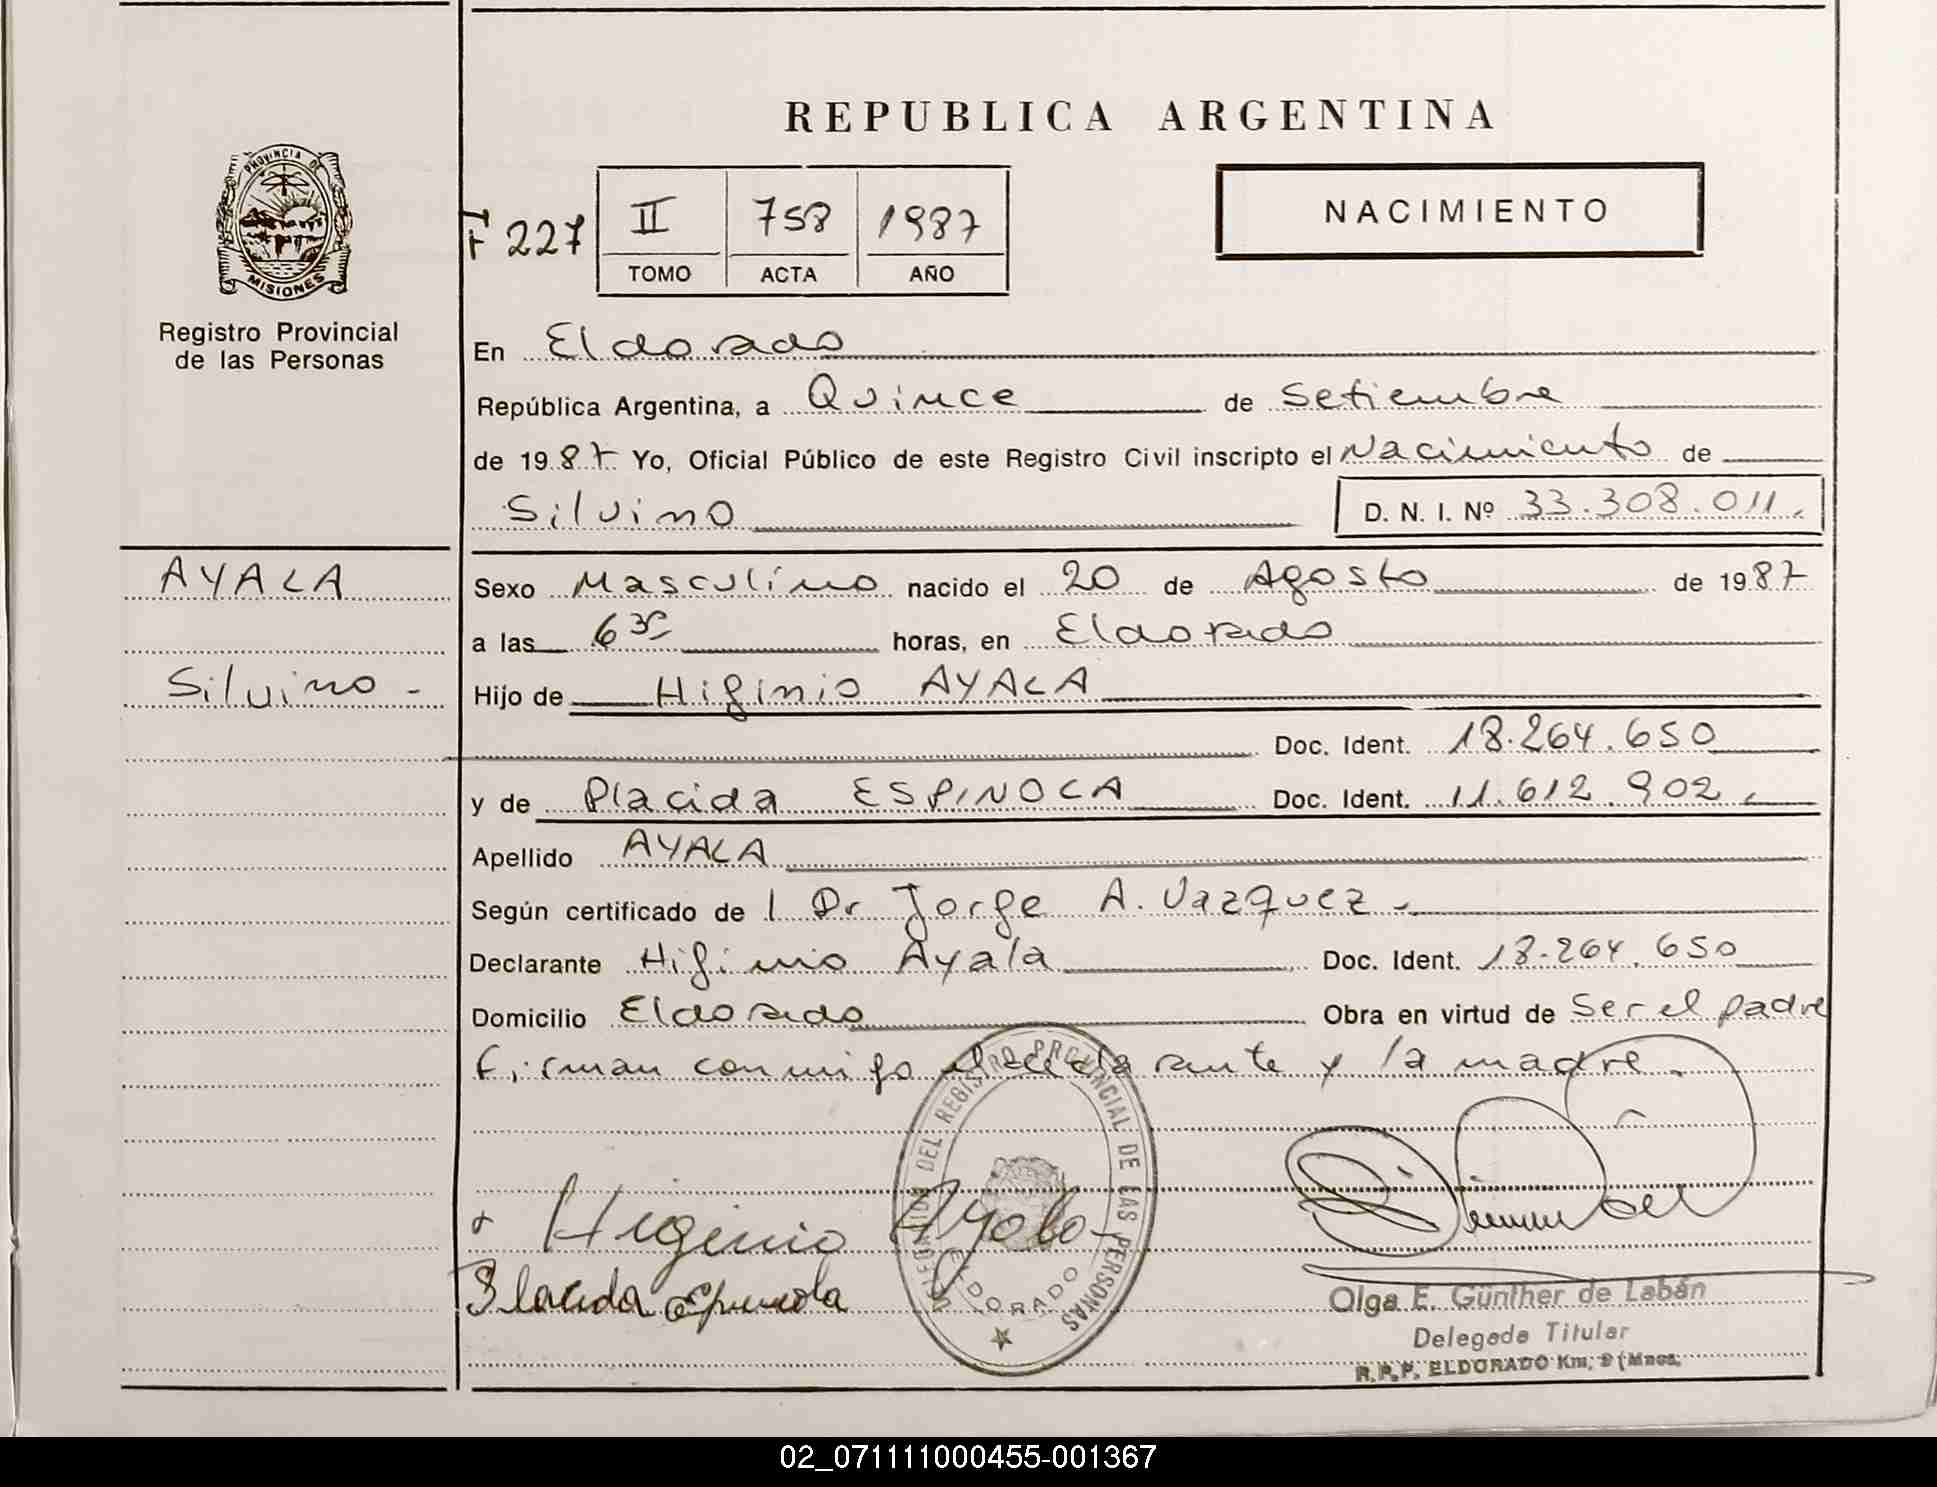 REPUBLICA ARGENTINA
PROVINCIA DE
MISIONES
Registro Provincial
de las Personas
F 227 II 758 1987
TOMO ACTA AÑO
NACIMIENTO
En Eldorado
República Argentina, a Quince de Setiembre
de 1987 Yo, Oficial Público de este Registro Civil inscripto el Nacimiento de
Silvino D. N. I. Nº 33.308.011.
AYALA
Silvino -
Sexo Masculino nacido el 20 de Agosto de 1987
a las 6 30 horas, en Eldorado
Hijo de Higinio AYALA
Doc. Ident. 18.264.650
y de Placida ESPINOLA Doc. Ident. 11.612.902.
Apellido AYALA
Según certificado de l Dr Jorge A. Vazquez -
Declarante Higinio Ayala Doc. Ident. 18.264.650
Domicilio Eldorado Obra en virtud de Ser el padre
Firman conmigo el declarante y la madre.
Higinio Ayala
Placida Espinola
DELEGACION DEL REGISTRO PROVINCIAL DE LAS PERSONAS
ELDORADO
Olga E. Günther de Labán
Delegada Titular
R.P.P. ELDORADO Km. 9 (Mnes.
02_071111000455-001367